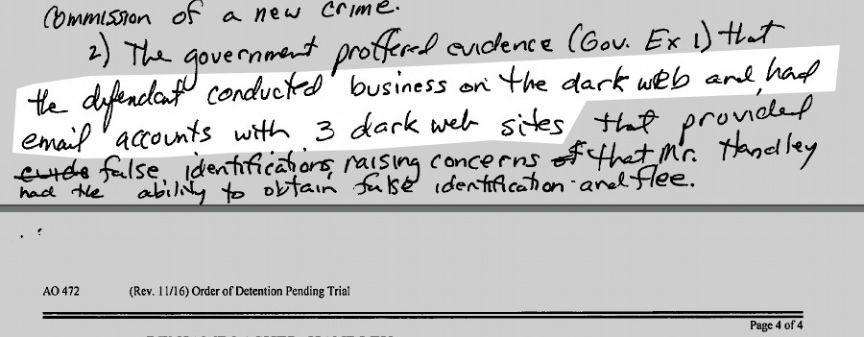 Commission of a new crime.
2) The government proffered evidence (Gov. Ex 1) that
the defendant conducted business on the dark web and had
email accounts with 3 dark web sites that provided
false identifications, raising concerns that Mr. Handley
had the ability to obtain false identification and flee.
AO 472 (Rev. 11/16) Order of Detention Pending Trial
Page 4 of 4